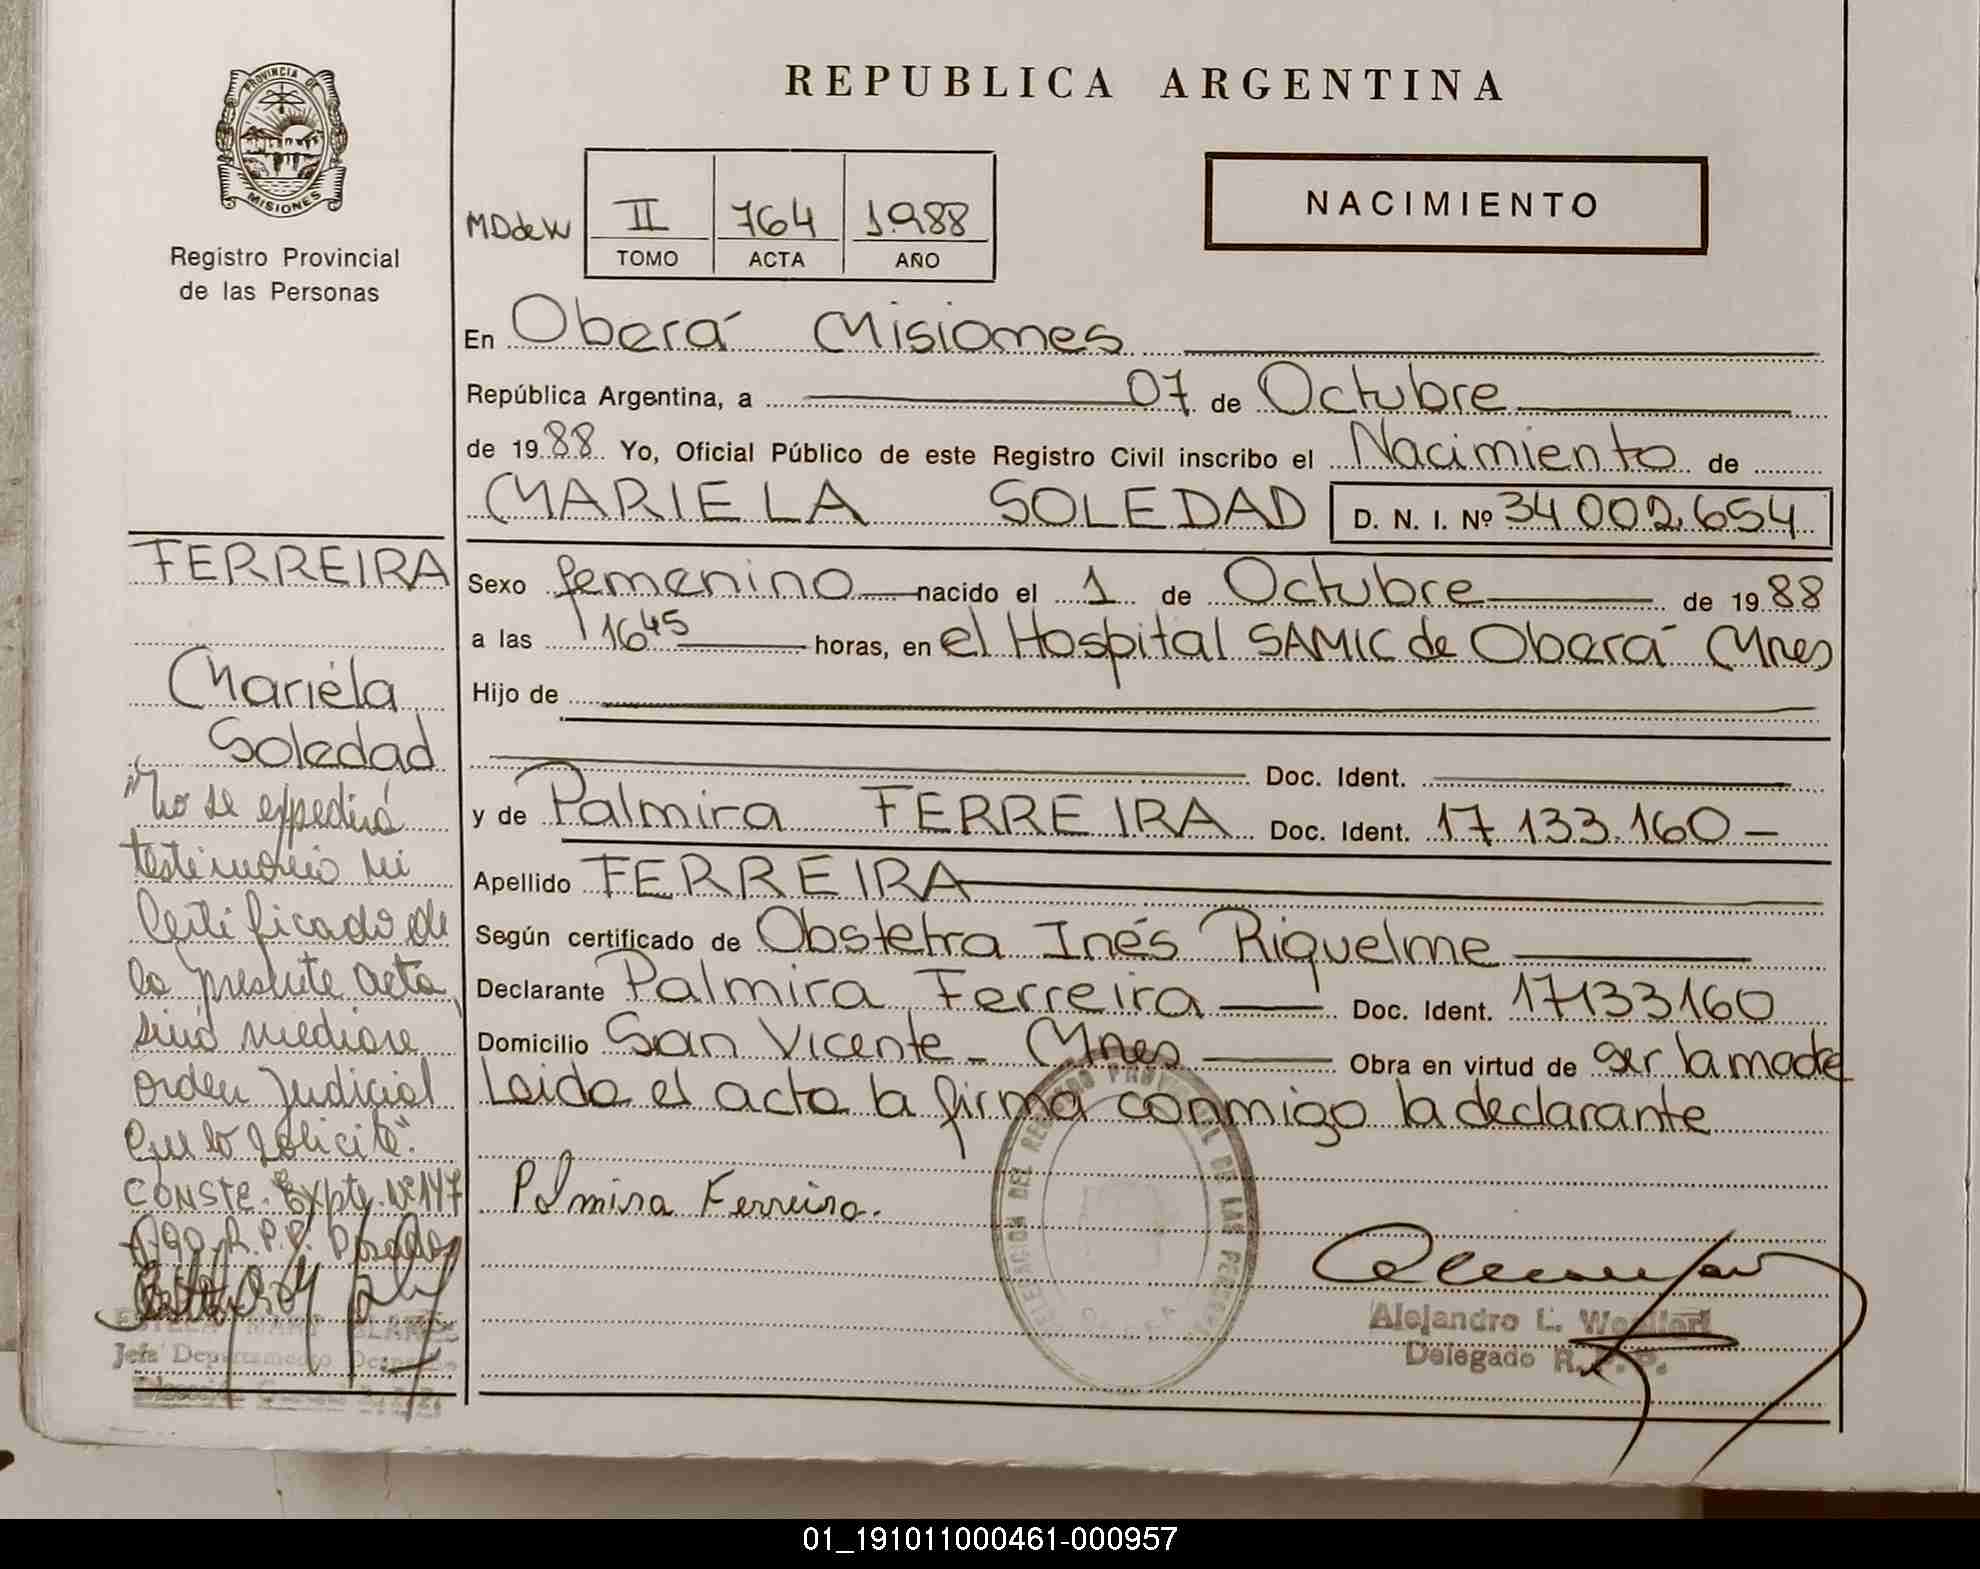 REPUBLICA ARGENTINA
PROVINCIA DE
MISIONES
Registro Provincial
de las Personas
NACIMIENTO
MDdeW
II 764 1988
TOMO ACTA AÑO
En Oberá Misiones
República Argentina, a 07 de Octubre
de 1988 Yo, Oficial Público de este Registro Civil inscribo el Nacimiento de
MARIELA SOLEDAD D. N. I. Nº 34 002.654
Sexo femenino nacido el 1 de Octubre de 1988
a las 16 45 horas, en el Hospital SAMIC de Oberá Mnes
Hijo de
Doc. Ident.
y de Palmira FERREIRA Doc. Ident. 17.133.160-
Apellido FERREIRA
Según certificado de Obstetra Inés Riquelme
Declarante Palmira Ferreira Doc. Ident. 17133160
Domicilio San Vicente - Mnes Obra en virtud de ser la madre
Leida el acta la firma conmigo la declarante
Palmira Ferreira.
Alejandro L.
Delegado R.P.P.
FERREIRA
Mariela
Soledad
"No se expedirá
testimonio ni
Certificado de
la presente acta,
sino mediare
orden Judicial
que lo solicite".
CONSTE. Expte. Nº 147
Jefa Departamento
01_191011000461-000957